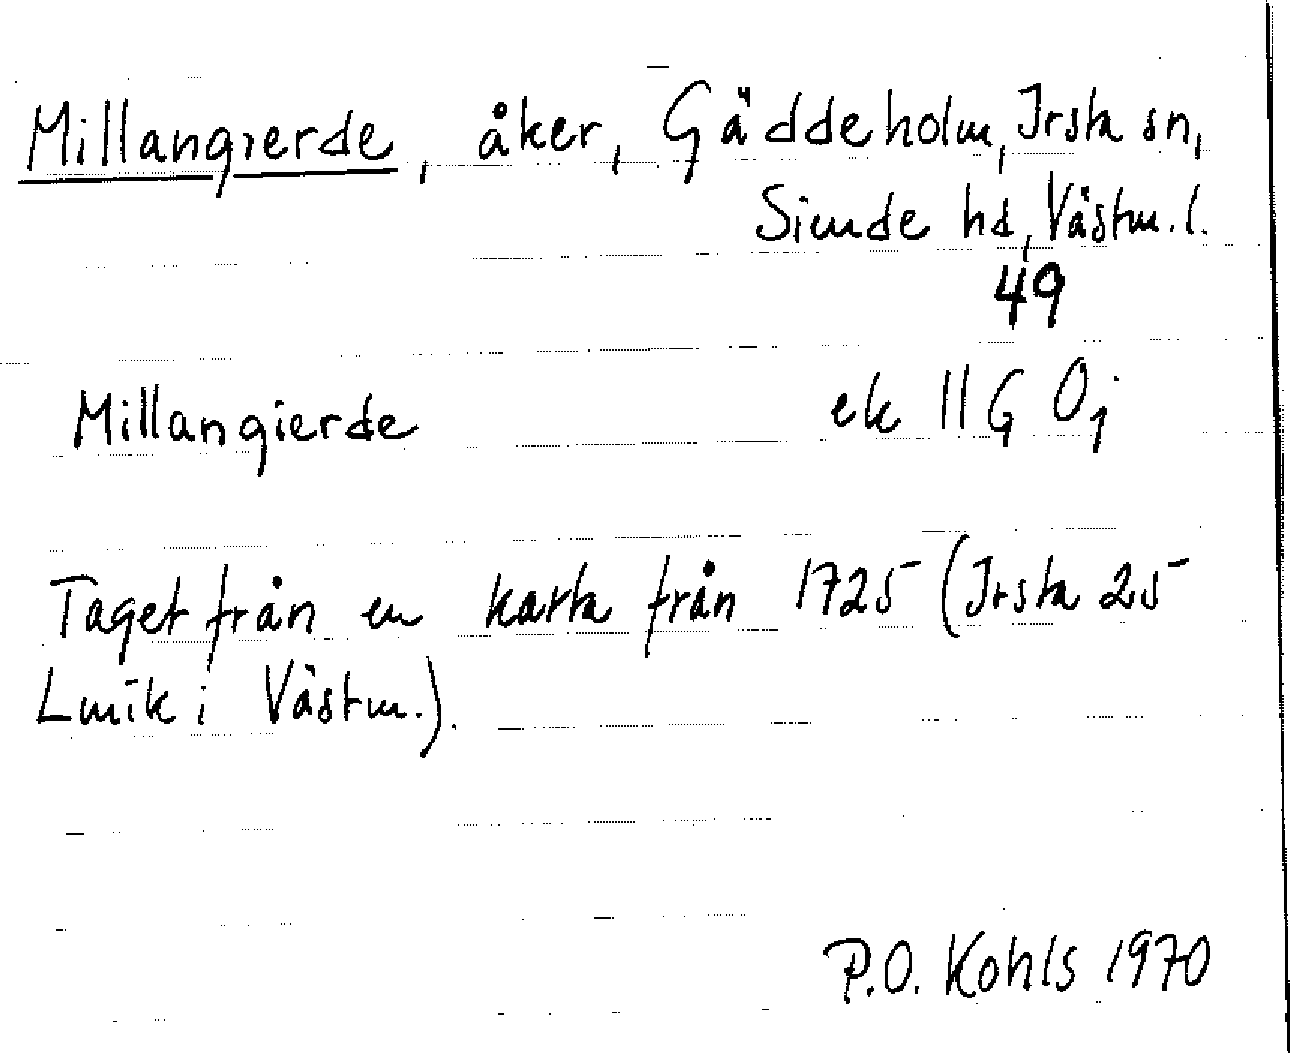 Millangierde, åker, Gäddeholm, Irsta sn,
Siende hd, Västm. l.
49
Millangierde ek 11G 0j
Taget från en karta från 1725 (Irsta 25
Lmk i Västm.).
P.O. Kohls 1970